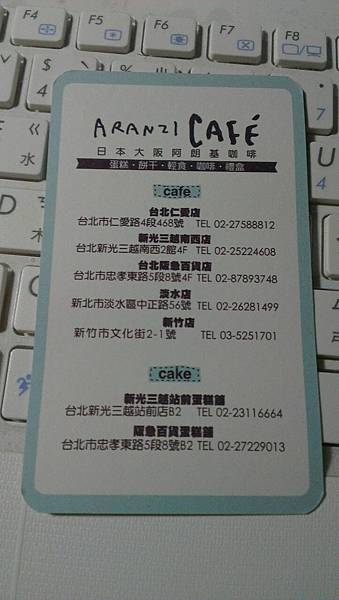 F4 F5 F6 F7 F8
ARANZI CAFÉ
日本大阪阿朗基咖啡
蛋糕・餅干・輕食・咖啡・禮盒
cafe
台北仁愛店
台北市仁愛路4段468號 TEL 02-27588812
新光三越南西店
台北新光三越南西2館4F TEL 02-25224608
台北阪急百貨店
台北市忠孝東路5段8號4F TEL 02-87893748
淡水店
新北市淡水區中正路56號 TEL 02-26281499
新竹店
新竹市文化街2-1號 TEL 03-5251701
cake
新光三越站前蛋糕舖
台北新光三越站前店B2 TEL 02-23116664
阪急百貨蛋糕舖
台北市忠孝東路5段8號B2 TEL 02-27229013